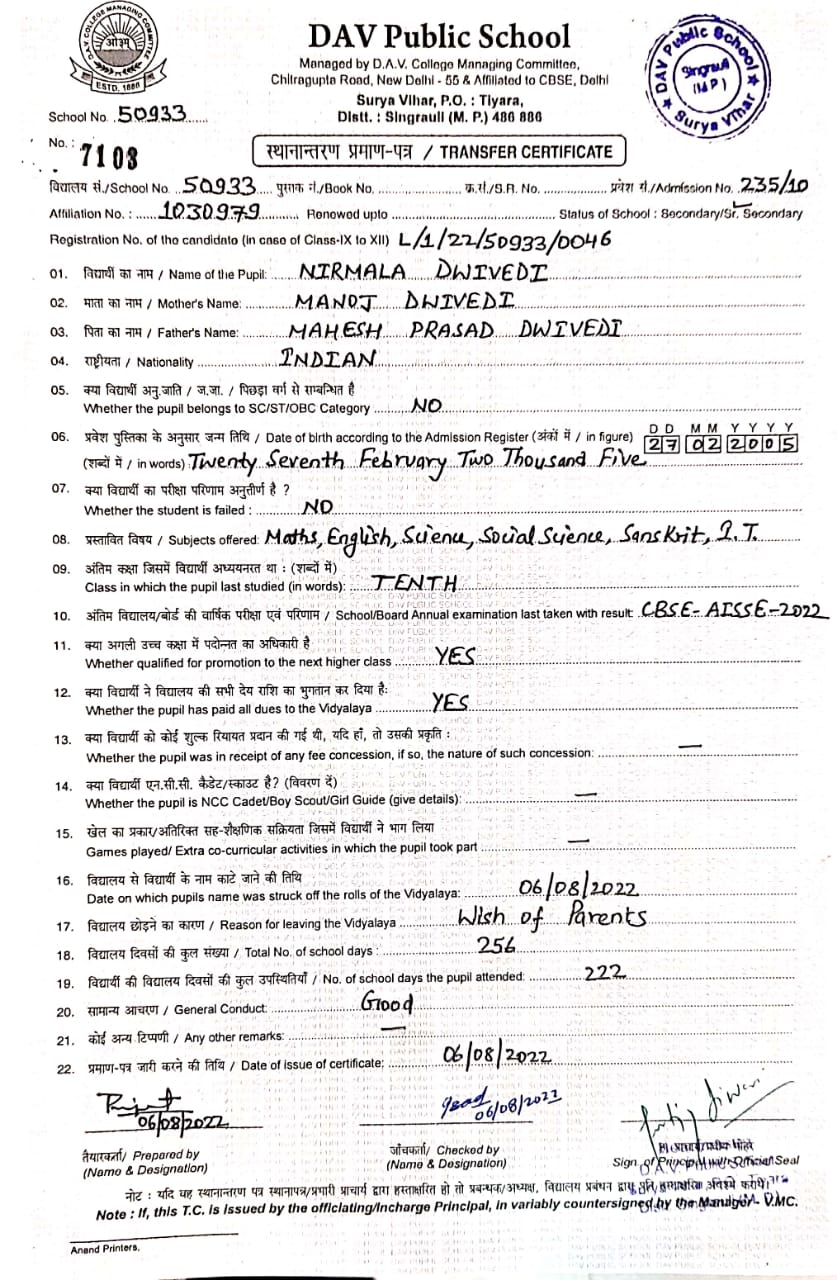 DAV Public School
Managed by D.A.V. College Managing Committee,
Chitragupta Road, New Delhi - 55 & Affiliated to CBSE, Delhi
Surya Vihar, P.O. : Tiyara,
Distt. : Singrauli (M. P.) 486 886
D.A.V. COLLEGE MANAGING COMMITTEE
ओ३म्
ESTD. 1886
DAV Public School
Singrauli
(M P)
Surya Vihar
School No. 50933
No. : 7108
स्थानान्तरण प्रमाण-पत्र / TRANSFER CERTIFICATE
विद्यालय सं./School No. 50933 पुस्तक नं./Book No. क्र.सं./S.R. No. प्रवेश सं./Admission No. 235/10
Affiliation No. : 1030979 Renowed upto Status of School : Secondary/Sr. Secondary
Registration No. of the candidate (in case of Class-IX to XII) L/1/22/50933/0046
01. विद्यार्थी का नाम / Name of the Pupil: NIRMALA DWIVEDI
02. माता का नाम / Mother's Name: MANOJ DWIVEDI
03. पिता का नाम / Father's Name: MAHESH PRASAD DWIVEDI
04. राष्ट्रीयता / Nationality INDIAN
05. क्या विद्यार्थी अनु.जाति / ज.जा. / पिछड़ा वर्ग से सम्बन्धित है
Whether the pupil belongs to SC/ST/OBC Category NO
D D M M Y Y Y Y
06. प्रवेश पुस्तिका के अनुसार जन्म तिथि / Date of birth according to the Admission Register (अंकों में / in figure) 27 02 2005
(शब्दों में / in words) Twenty Seventh February Two Thousand Five
07. क्या विद्यार्थी का परीक्षा परिणाम अनुत्तीर्ण है ?
Whether the student is failed : NO
08. प्रस्तावित विषय / Subjects offered: Maths, English, Science, Social Science, Sanskrit, I.T.
09. अंतिम कक्षा जिसमें विद्यार्थी अध्ययनरत था : (शब्दों में)
Class in which the pupil last studied (in words): TENTH
10. अंतिम विद्यालय/बोर्ड की वार्षिक परीक्षा एवं परिणाम / School/Board Annual examination last taken with result: CBSE-AISSE-2022
11. क्या अगली उच्च कक्षा में पदोन्नत का अधिकारी है
Whether qualified for promotion to the next higher class YES
12. क्या विद्यार्थी ने विद्यालय की सभी देय राशि का भुगतान कर दिया है:
Whether the pupil has paid all dues to the Vidyalaya YES
13. क्या विद्यार्थी को कोई शुल्क रियायत प्रदान की गई थी, यदि हाँ, तो उसकी प्रकृति :
Whether the pupil was in receipt of any fee concession, if so, the nature of such concession: —
14. क्या विद्यार्थी एन.सी.सी. कैडेट/स्काउट है? (विवरण दें)
Whether the pupil is NCC Cadet/Boy Scout/Girl Guide (give details): —
15. खेल का प्रकार/अतिरिक्त सह-शैक्षणिक सक्रियता जिसमें विद्यार्थी ने भाग लिया
Games played/ Extra co-curricular activities in which the pupil took part —
16. विद्यालय से विद्यार्थी के नाम काटे जाने की तिथि
Date on which pupils name was struck off the rolls of the Vidyalaya: 06/08/2022
17. विद्यालय छोड़ने का कारण / Reason for leaving the Vidyalaya Wish of Parents
18. विद्यालय दिवसों की कुल संख्या / Total No. of school days : 256
19. विद्यार्थी की विद्यालय दिवसों की कुल उपस्थितियाँ / No. of school days the pupil attended: 222
20. सामान्य आचरण / General Conduct: Good
21. कोई अन्य टिप्पणी / Any other remarks: —
22. प्रमाण-पत्र जारी करने की तिथि / Date of issue of certificate: 06/08/2022
06/08/2022
06/08/2022
तैयारकर्ता/ Prepared by
(Name & Designation)
जाँचकर्ता/ Checked by
(Name & Designation)
Sign of Principal with Official Seal
नोट : यदि यह स्थानान्तरण पत्र स्थानापन्न/प्रभारी प्राचार्य द्वारा हस्ताक्षरित हो तो प्रबन्धक/अध्यक्ष, विद्यालय प्रबंधन द्वारा
Note : If, this T.C. is issued by the officiating/Incharge Principal, in variably countersigned by the Manager VMC.
Anand Printers.